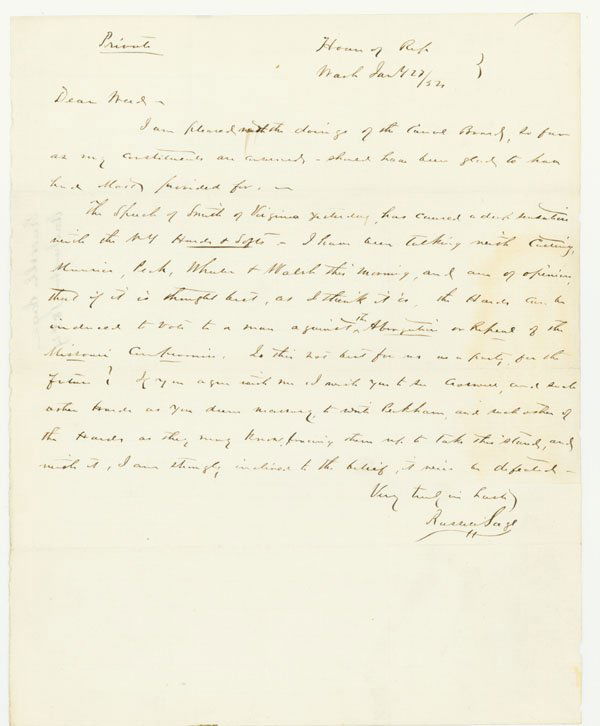 Private
House of Rep
Wash Jany 27/54
Dear Weed -
I am pleased with the doings of the Canal Board, so far
as my constituents are concerned - should have been glad to have
had provided for. -
The Speech of Smith of Virginia yesterday, has caused a deep sensation
with the NY Hards & Softs - I have been talking with Cutting,
Maurice, Peck, Wheeler & Walsh this morning, and am of opinion,
that if it is thought best, as I think it is, the Hards can be
induced to vote to a man against the Abrogation or Repeal of the
Missouri Compromise. Is this not best for us as a party, for the
future? If you agree with me I wish you to see Croswell, and such
other Hards as you deem necessary to write Peckham, and such other of
the Hards as they may know, them up to take this stand, and
with it, I am strongly inclined to the belief, it will be defeated -
Very truly in haste
Russell Sage